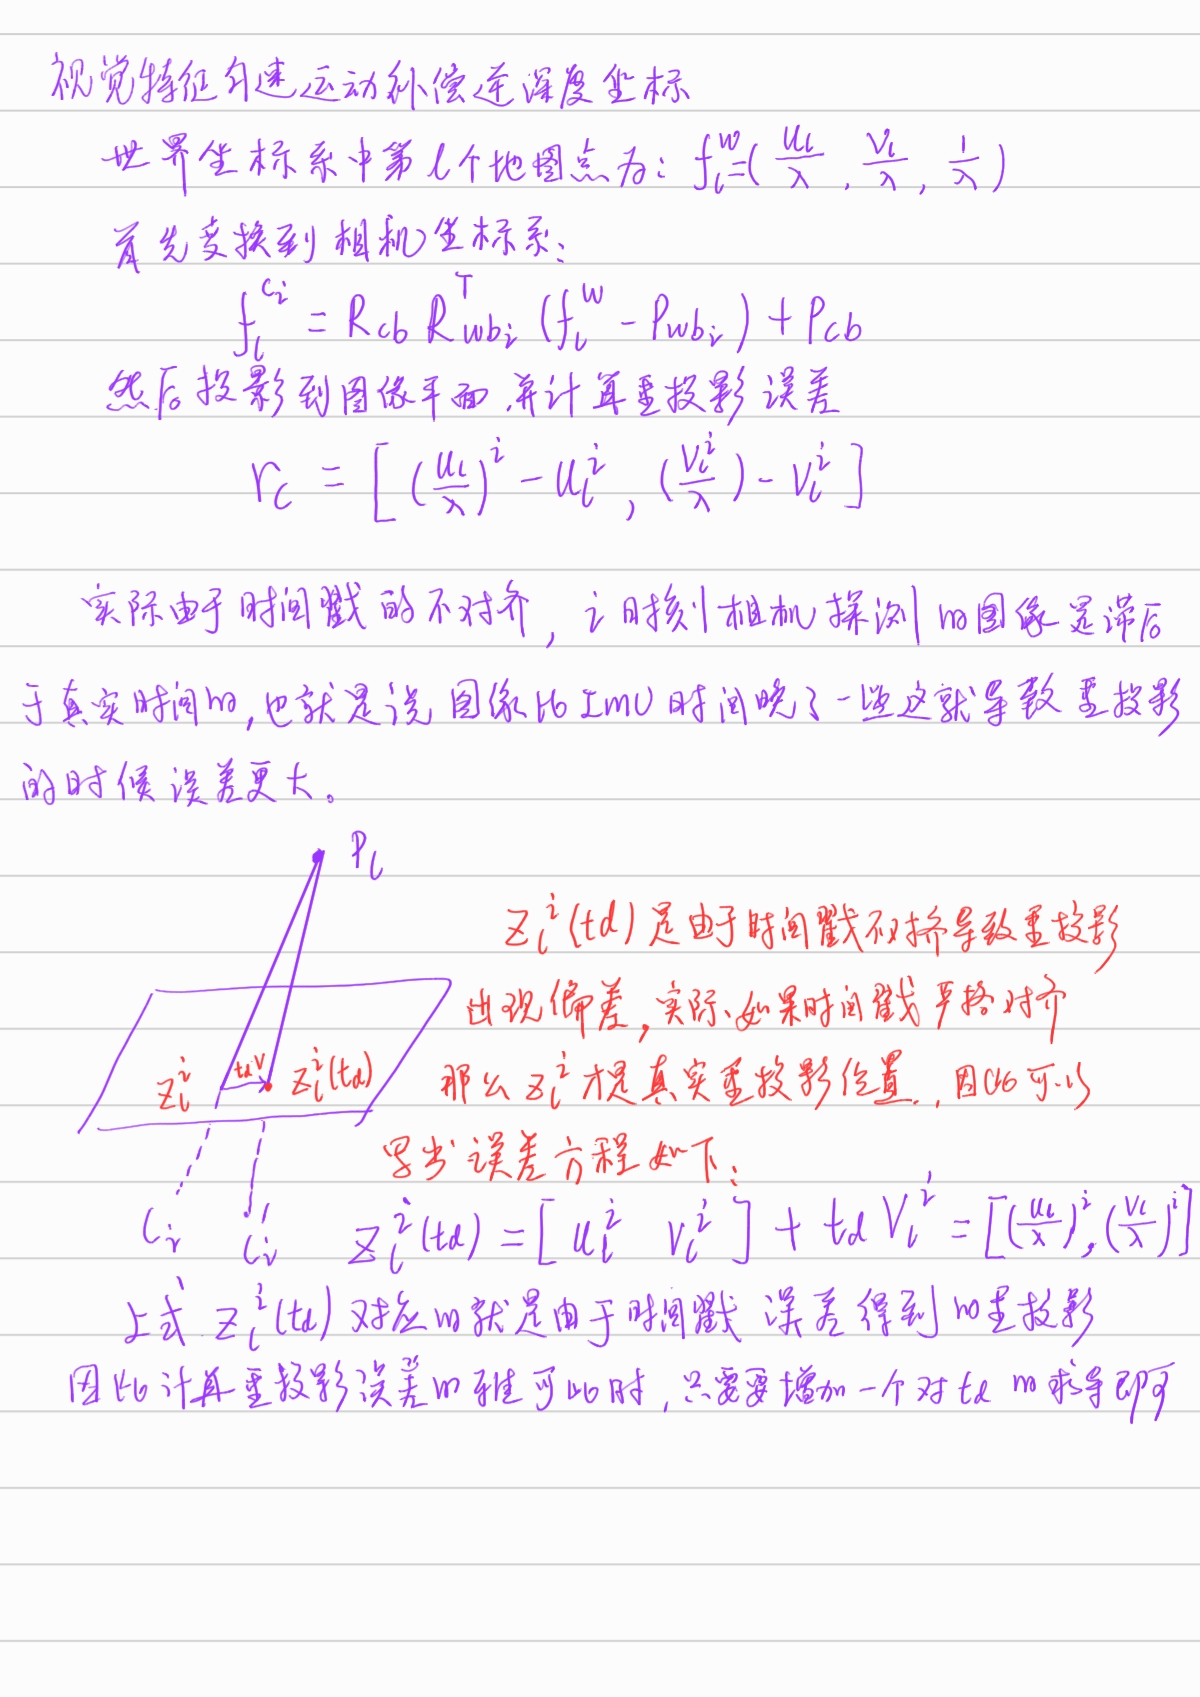 视觉特征匀速运动补偿逆深度坐标
世界坐标系中第l个地图点为: f_l^w=(u_l/λ, v_l/λ, 1/λ)
首先变换到相机坐标系:
f_l^{c_i} = R_cb R_{wb_i}^T (f_l^w - P_{wb_i}) + P_cb
然后投影到图像平面,并计算重投影误差
r_c = [(u_l/λ)^i - u_l^i, (v_l^i/λ) - v_l^i]
实际由于时间戳的不对齐, i时刻相机探测的图像是滞后
于真实时间的,也就是说图像比IMU时间晚了一些这就导致重投影
的时候误差更大。
P_l
Z_l^i(td)是由于时间戳不对挤导致重投影
出现偏差,实际、如果时间戳严格对齐
Z_l^i td V Z_l^i(td) 那么 Z_l^i 才是真实重投影位置.,因此可以
写出误差方程如下:
C_i C_i' Z_l^i(td) = [u_l^i v_l^i] + td V_l^i = [(u_l/λ)^i, (v_l/λ)^i]
上式 Z_l^i(td) 对应的就是由于时间戳误差得到的重投影
因此计算重投影误差的雅可比时,只需要增加一个对td的求导即可